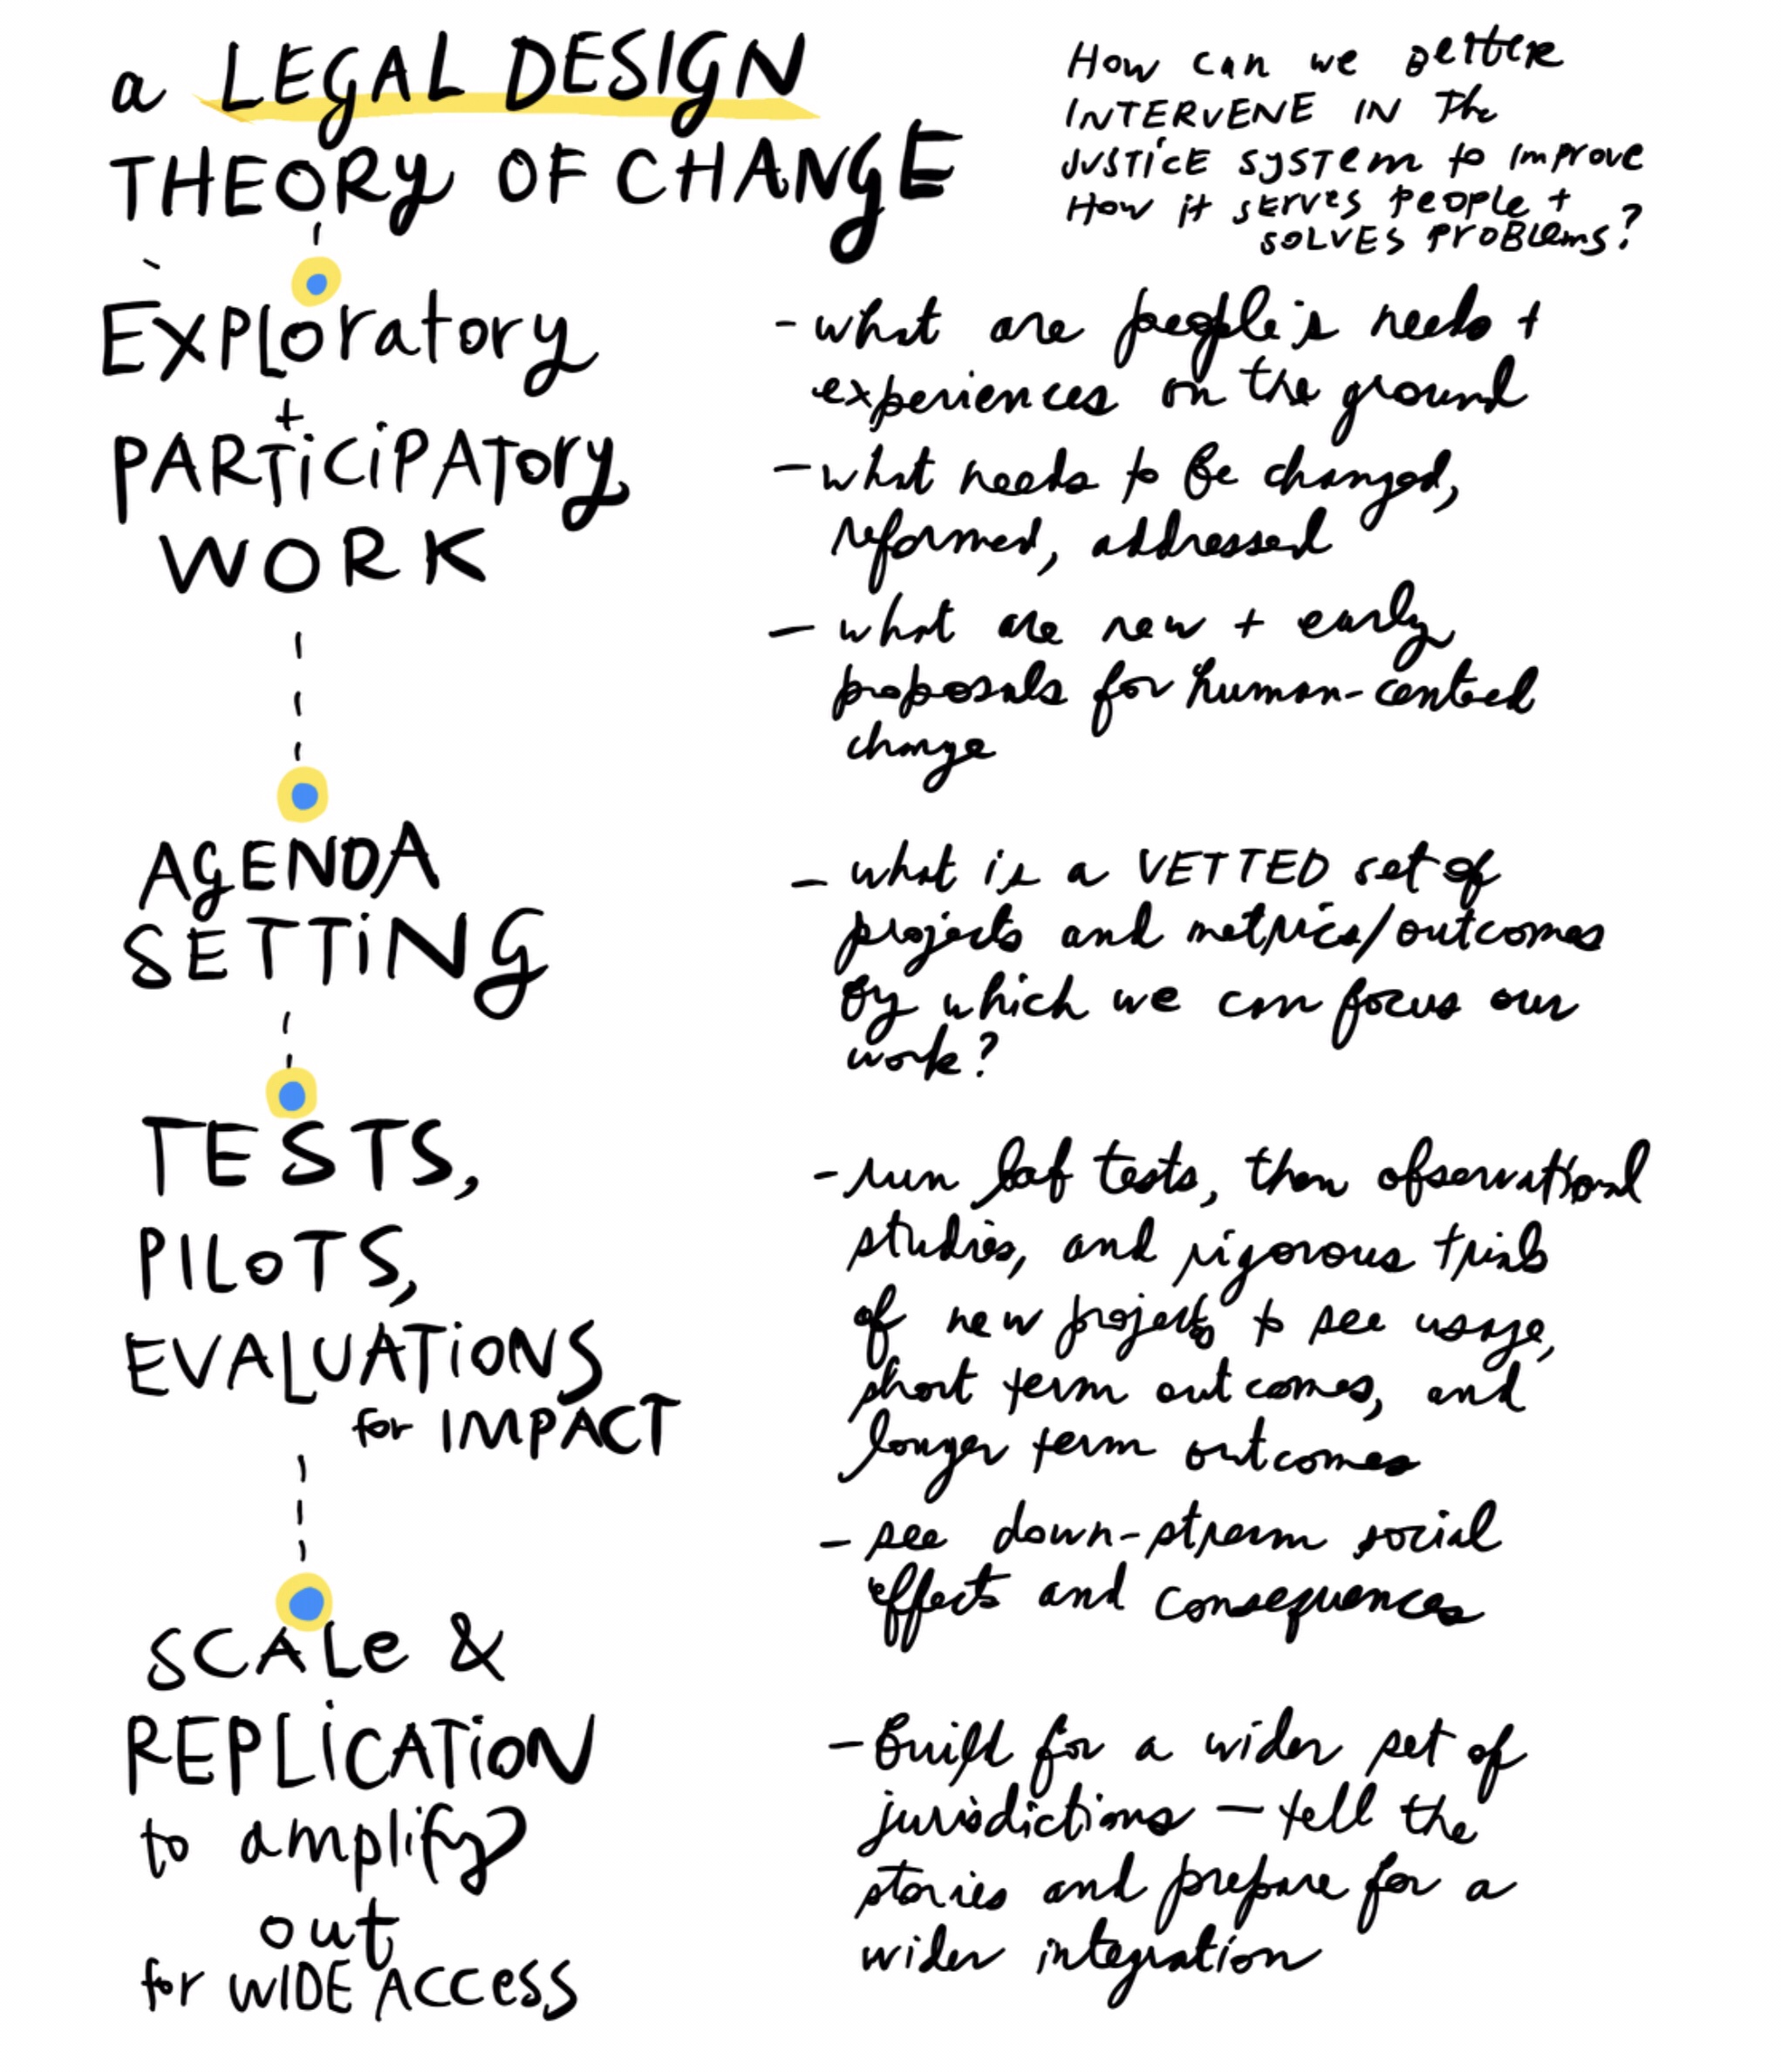 a LEGAL DESIGN
THEORY OF CHANGE
How can we better
INTERVENE IN The
JUSTICE SYSTEM to Improve
How it serves people +
SOLVES PROBLEMS?
Exploratory
+
PARTICIPATORY
WORK
- what are people's needs +
experiences on the ground
- what needs to be changed,
reformed, addressed
- what are new + early
proposals for human-centered
change
AGENDA
SETTING
- what is a VETTED set of
projects and metrics/outcomes
by which we can focus our
work?
TESTS,
PILOTS,
EVALUATIONS
for IMPACT
- run lab tests, then observational
studies, and rigorous trials
of new projects to see usage,
short term outcomes, and
longer term outcomes
- see down-stream social
effects and consequences
SCALE &
REPLICATION
to amplify
out
for WIDE ACCESS
- Build for a wider set of
jurisdictions - tell the
stories and prepare for a
wider integration